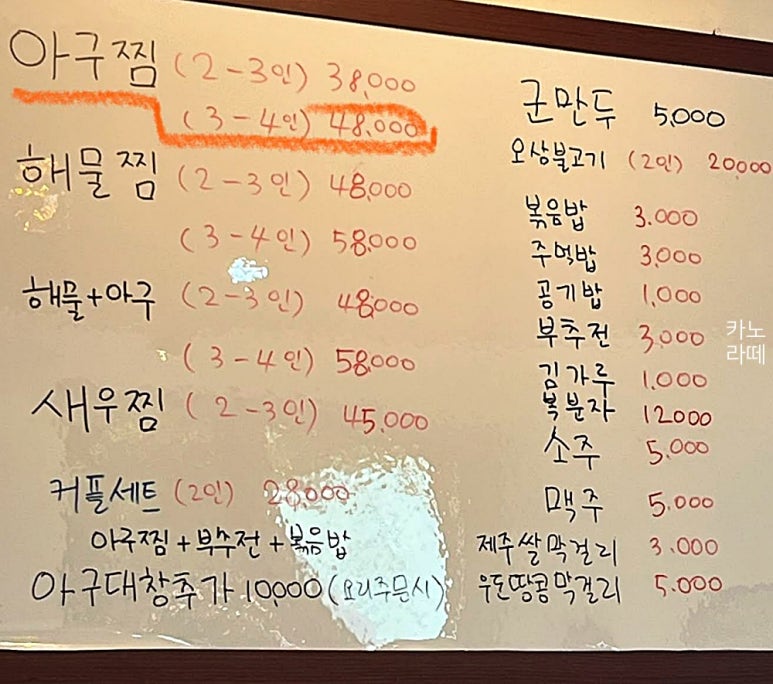 아구찜 (2-3인) 38,000
(3-4인) 48,000
해물찜 (2-3인) 48,000
(3-4인) 58,000
해물+아구 (2-3인) 48,000
(3-4인) 58,000
새우찜 (2-3인) 45,000
커플세트 (2인) 28,000
아구찜+부추전+볶음밥
아구대창추가 10,000 (요리주문시)
군만두 5,000
오삼불고기 (2인) 20,000
볶음밥 3.000
주먹밥 3,000
공기밥 1,000
부추전 3,000
김가루 1,000
복분자 12000
소주 5,000
맥주 5,000
제주쌀막걸리 3.000
우도땅콩막걸리 5.000
카노
라떼